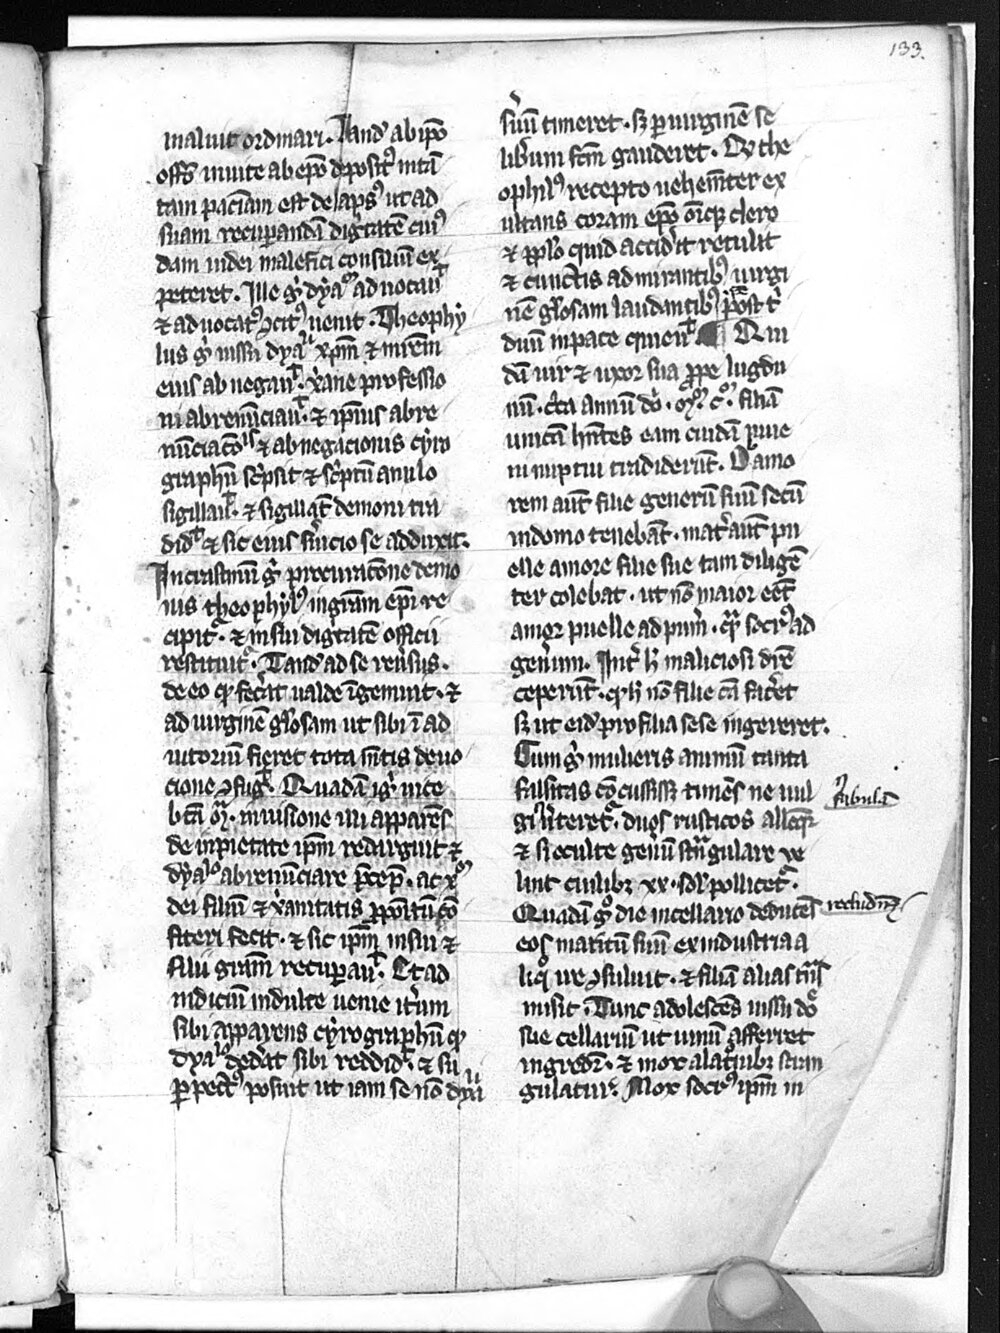 133.
maluit ordinari. Tand' ab ip̄o
offō inuite ab ep̄o deposit᷒ in tā
tam paciām est delaps᷒ ut ad
suam recuperandā dig̅tatē cui᷒
dam iudei malefici consiliū ex
peteret. Ille g̊ dyā adnocau͛
⁊ aduocat᷒ ↄcit᷒ uenit. Theophy
lus g̊ iussu dyaⁱⁱ xp̄m ⁊ mr̄em
eius abnegau͛. xāne professio
ni abrenūciau͛. ⁊ ip̄ius abre
nūciacōis ⁊ abnegacionis cyro
graphū scpsit ⁊ scptū anulo
sigillau͛. ⁊ sigillat̄ demoni tra
did͛ ⁊ sic eius seruicio se adduxit.
In crastinū g̊ procuracōne demo
nis theophyl᷒ in gr̄am ep̄i re
cipit͛. ⁊ in sui dig̅tatē officii
restituit͛. Tand' ad se reu͛sus.
de eo qᵈ fec͛at ualde īgemuit. ⁊
ad uirginē gl̄osam ut sibi ī ad
iutoriū fieret tota m̄tis deuo
cione ↄfug͛. Quadā ig̊ uice
bt̄a m̄. in uisione illi apparēs
de inpietate ip̄m redarguit ⁊
dyaˡᵒ abrenūciare p̄cep͛. ac x᷒
dei filiū ⁊ xānitatis p̱positū cō
fiteri fecit. ⁊ sic ip̄m in sui ⁊
filii gr̄am recuperau͛. Et ad
indiciū indulte uenie it͛um
sibi apparens cyrographū qᵈ
dyaˡᵒ ded͛at sibi reddid͛. ⁊ su
p̱ pect᷒ posuit ut iam se nō dyaⁱⁱ
s͛uū timeret. sꝫ per uirginē se
lib͛um fc̄m gauderet. Qᵈ the
ophil᷒ recepto uehem̄ter ex
ultans coram ep̄o om̄iqꝫ clero
⁊ pp̄lo quid accid͛it retulit
⁊ cunctis admirantib᷒ uirgi
nē gl̄osam laudantib᷒ post t͛
duū in pace quieu͛ Qui
dā uir ⁊ uxor sua prope lugdu
nū. c͛ca annū dō. mͦ. cͦ. filiā
unicā hn̄tes eam cuidā iuue
ni nuptui tradiderūt. Ob amo
rem aūt filie generū suū secū
in domo tenebāt. mat͛ aūt pu
elle amore filie sue tam diligē
ter colebat. ut nō maior eēt
amor puelle ad uirum. qᵃ socr᷒ ad
gen͛um. Int͛ h̄ maliciosi dic͛e
ceperūt. qᵈ h̄ nō filie cā fac͛et
sꝫ ut eid' pro filia sese ingereret.
Cum g̊ mulieris animū tanta
falsitas cōcussissꝫ timēs ne uul
gi uēteret͛. duos rusticos alleqͬ
⁊ si oculte gen͛ū strangulare ue
lint cuilibꝫ xx. sol' pollicet͛.
Quadā g̊ die in cellario deducēs
eos maritū suū ex industria a
liqͦ ire ↄsuluit. ⁊ filiā alias trās
misit. Tunc adolescēs iussu dn̄e
sue cellariū ut uinū afferret
ingredit͛. ⁊ mox a latroībꝫ stran
gulatur. Mox socr᷒ ip̄m in
fabula
recludens